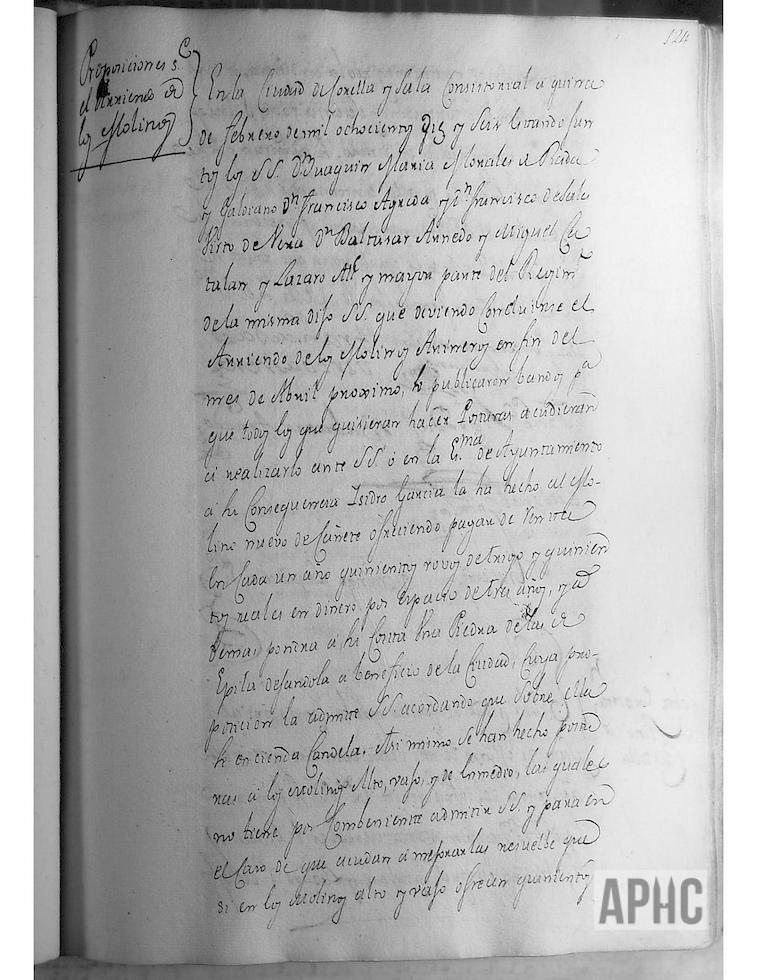 124
Proposiciones sre
el Arriendo de
los Molinos
En la Ciudad de Corella y Sala Consistorial a quince
de febrero de mil ochocientos diez y seis estando jun
tos los SS. Dn Juaquin Maria Morales de Rada
y Dn francisco Agreda y Dn francisco de Sales
de Dn Baltasar Arnedo y Miguel Ca
talan y Lazaro y mayor parte del Regimto
de la misma dijo SS. que deviendo Concluirse el
Arriendo de los Molinos Arineros en fin del
mes de Abril proximo, se publicaron bandos pa
que todos los que quisieran hacer Posturas acudieran
a realizarlo ante SS. ó en la de Ayuntamiento
a su Conseguencia Isidro Garcia la ha hecho al Mo-
lino nuevo de Cañete ofreciendo pagar de renta
en Cada un año quinientos rovos de trigo y quinien
tos reales en dinero por espacio de tres años, y a
demas pondra a su Costa una Piedra de las de
Epila dejandola a beneficio de la Ciudad, Cuya pro-
posicion la admite SS. acordando que sobre ella
se encienda Candela. Asi mismo se han hecho postu
ras a los Molinos Alto, vajo, y de enmedio, las quales
no tiene por Combeniente admitir SS. y para en
el Caso de que acudan a mejorarlas resuelbe que
si en los Molinos alto y vajo ofrecen quinientos
APHC